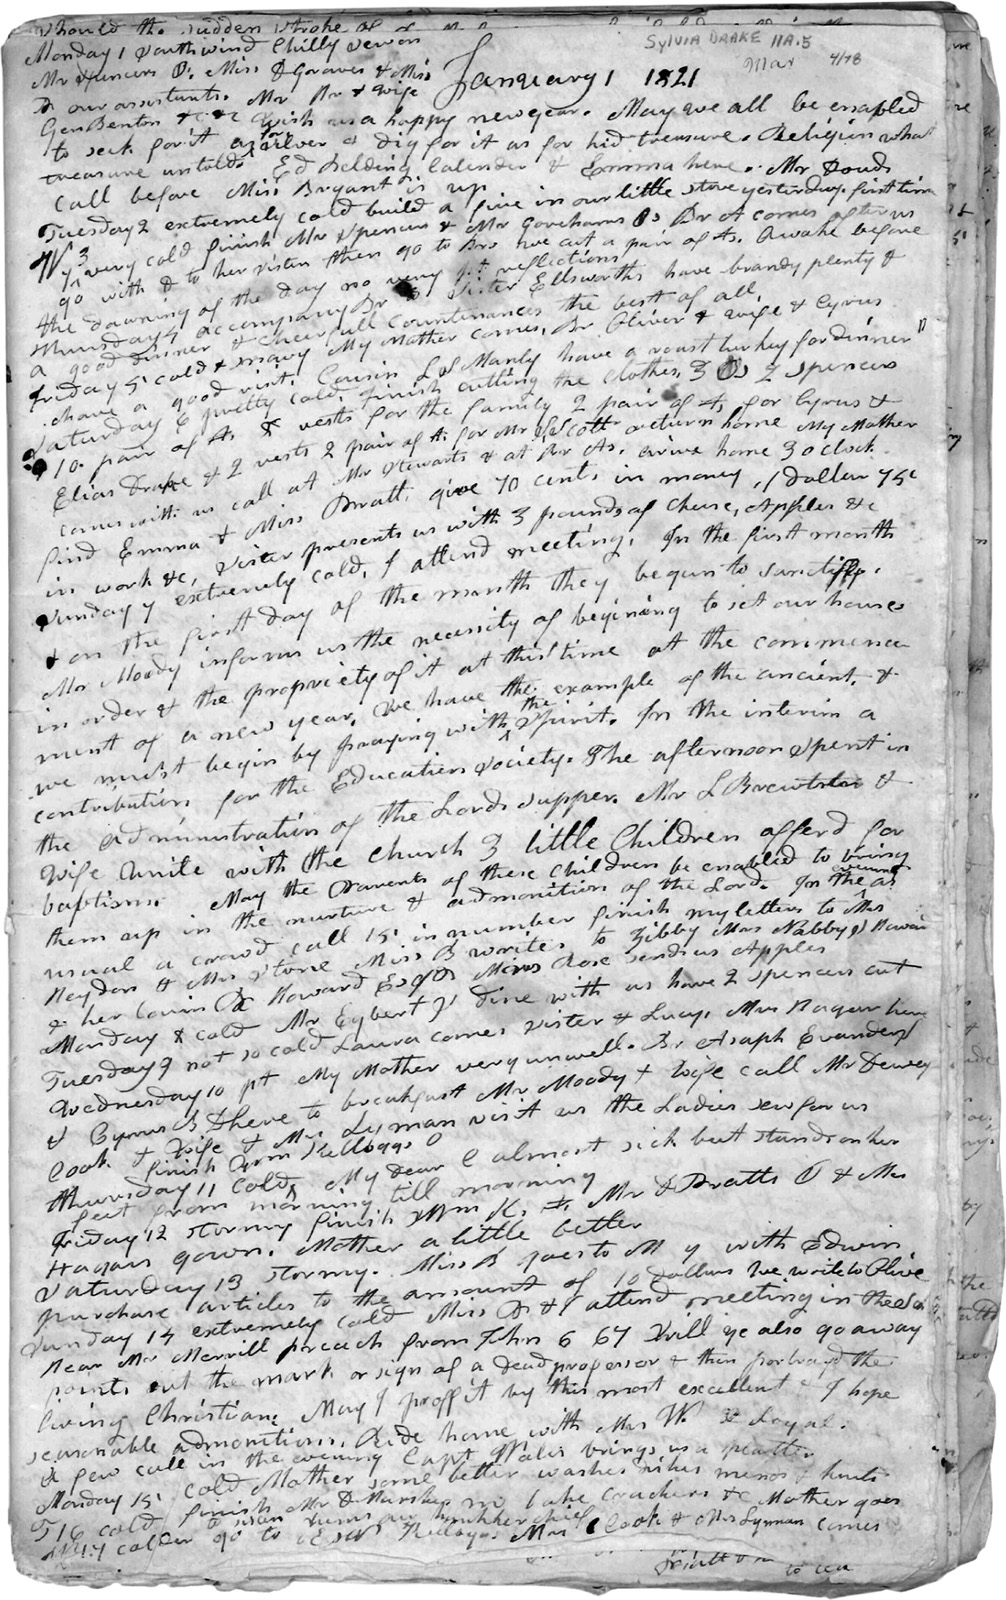 should the sudden stroke of
SYLVIA DRAKE 11A.5
Mar 4/78
Monday 1 South wind Chilly Sewon
January 1 1821
Mr Spencers O. Miss D Graves & Miss
our assistants. Mr Br & Wife
Gen Benton &c &c Wish us a happy new year. May we all be enabled
to seek for it as for silver & dig for it as for hid treasure. Religion what
treasure untold. Ed Belding, Calender & Emma here. Mr Douds
call before Miss Bryant is up
Tuesday 2 extremely cold build a fire in our little stove yesterday first time
W 3 very cold finish Mr Spencers & Mr Gorehams Os Br A comes after us
go with & to her sister then go to Brs we cut a pair of As. Awake before
the dawning of the day no very reflections
Thursday 4 accompany Br & Sister Ellsworths have brandy plenty &
a good dinner & cheerfull countenances the best of all.
Friday 5 cold & snowy My Mother comes, Br Oliver & wife & Cyrus
have a good visit. Cousin L S Manly have a roast turkey for dinner
Saturday 6 pretty cold, finish cutting the clothes, 3 Os 2 spencers
10 pair of As & vests for the family 2 pair of As for Cyrus &
Elias Drake & 2 vests 2 pair of As for Mr Scott return home My Mother
comes with us call at Mr Stewarts & at Br As. arive home 3 oclock
find Emma & Miss Pratt. give 70 cents in money, 1 dollar 75c
in work &c, Sister presents us with 3 pounds of cheese, Apples &c
Sunday 7 extremely cold, I attend meeting. In the first month
& on the first day of the month they began to sanctify.
Mr Moody informs us the necessity of begining to set our houses
in order & the propriety of it at this time at the commence
ment of a new year. We have the example of the ancient, &
we must begin by praying with the Spirit. In the interim a
contribution for the Education Society. The afternoon spent in
the administration of the Lords supper. Mr L Brewster &
Wife Unite with the church 3 little Children offerd for
baptism. May the Parents of these Children be enabled to bring
them up in the nurture & admonition of the Lord. In the evening as
usual a crowd call 15 in number finish my letters to Mrs
Heydon & Mrs Stone Miss B writes to Zibby Mrs Nabby S
& her cousin Howard Esqrs Miss Rose sends us Apples
Monday 8 cold Mr Egbert J dine with us have 2 spencers cut
Tuesday 9 not so cold Laura comes Sister & Lucy. Mrs Hagar here
Wednesday 10 pt My Mother very unwell. Br Asaph Evanders
& Cyrus B here to breakfast Mr Moody & Wife call Mr Dewey
Cook & Wife & Mrs Lyman visit us the Ladies sew for us
finish Wm Kelloggs O
Thursday 11 Cold, My dear C almost sick but stands on her
feet from morning till morning
Friday 12 stormy finish Wm K. Mr D Pratts O & Mrs
Hagars gown. Mother a little better
Saturday 13 stormy. Miss B goes to M y with Edwin
purchase articles to the amount of 10 dollars We write to Olive
Sunday 14 extremely cold Miss B & I attend meeting in the
Hear Mr Merrill preach from John 6 67 Will ye also go away
points out the mark or sign of a dead professor & then portrayd the
living Christian. May I proffit by this most excellent & I hope
seasonable admonition. Ride home with Mrs W. & Loyal.
A few call in the evening Capt Wales brings us a platter
Monday 15 cold Mother some better washes dishes mends & knits
T 16 cold, finish Mr D Marshes bake Crackers &c Mother goes
W 17 colder go to Kelloggs Mrs Cook & Mrs Lyman comes
to tea